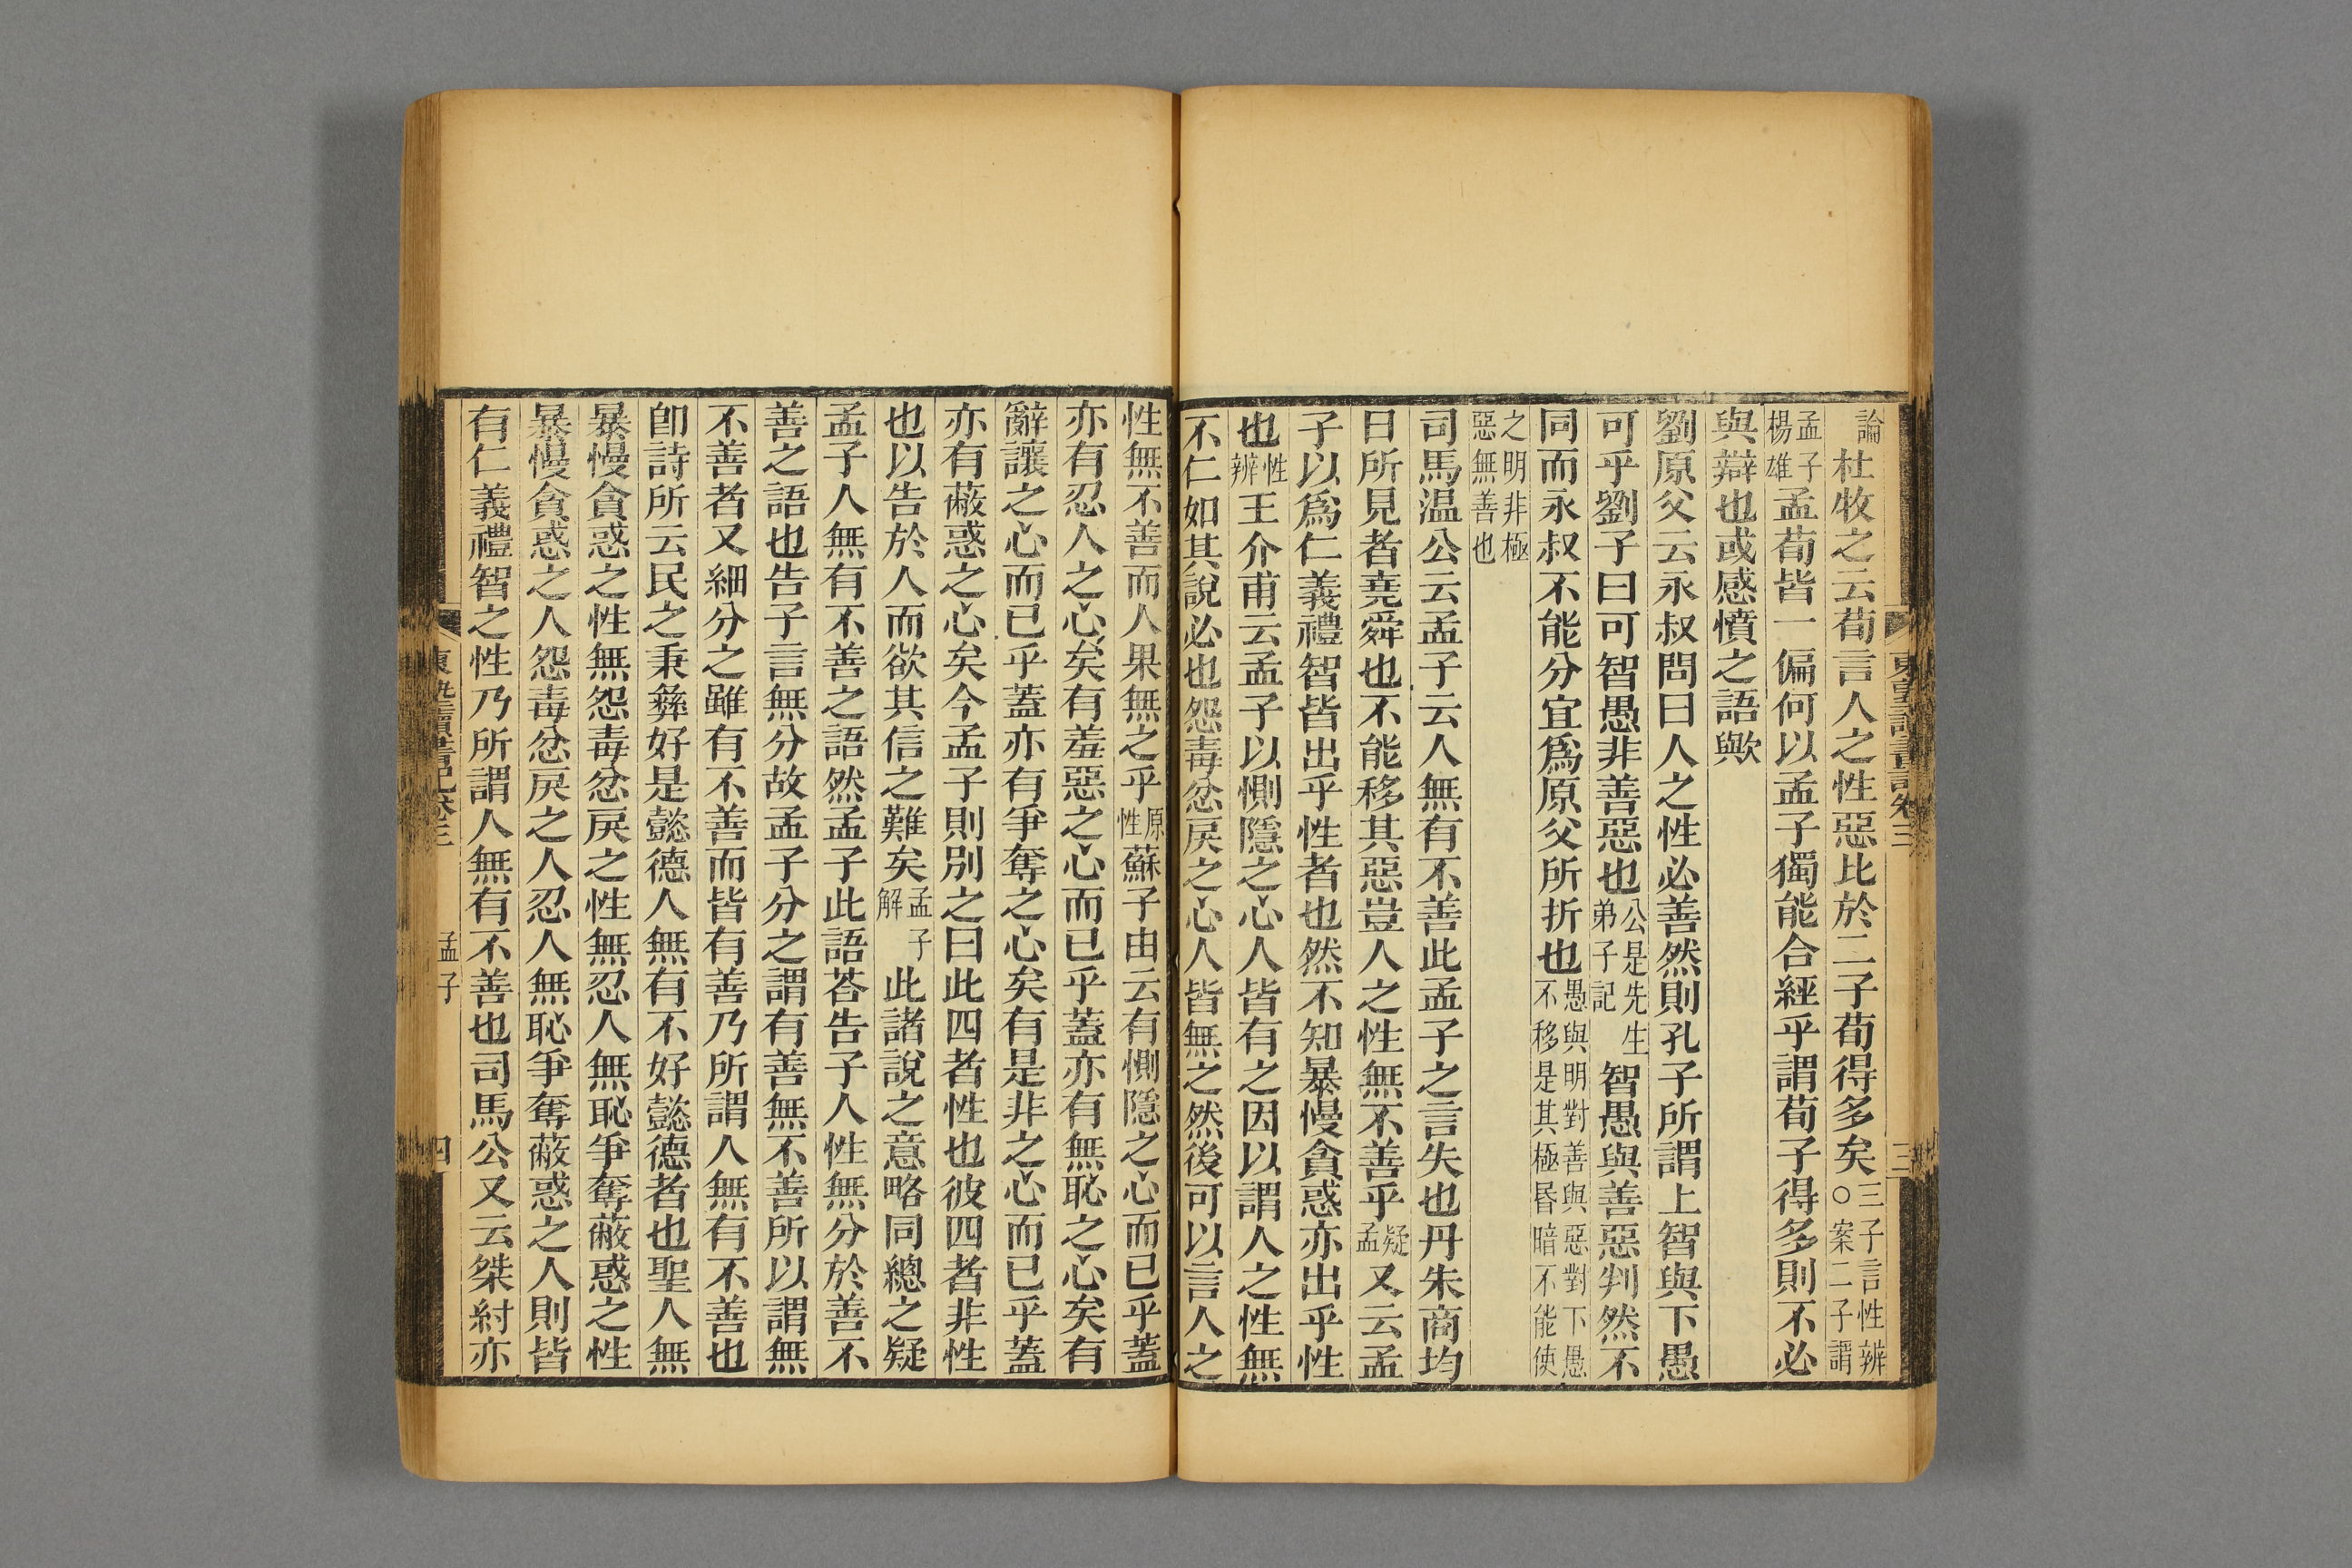 論杜牧之云荀言人之性惡比於二子荀得多矣三子言性辨○案二子謂
孟子楊雄孟荀皆一偏何以孟子獨能合經乎謂荀子得多則不必
與辯也或感憤之語歟
劉原父云永叔問曰人之性必善然則孔子所謂上智與下愚
可乎劉子曰可智愚非善惡也公是先生弟子記智愚與善惡判然不
同而永叔不能分宜爲原父所折也愚與明對善與惡對下愚不移是其極昏暗不能使
之明非極惡無善也
司馬温公云孟子云人無有不善此孟子之言失也丹朱商均
日所見者堯舜也不能移其惡豈人之性無不善乎疑孟又云孟
子以爲仁義禮智皆出乎性者也然不知暴慢貪惑亦出乎性
也性辨王介甫云孟子以惻隱之心人皆有之因以謂人之性無
不仁如其說必也怨毒忿戾之心人皆無之然後可以言人之
性無不善而人果無之乎原性蘇子由云有惻隱之心而已乎蓋
亦有忍人之心矣有羞惡之心而已乎蓋亦有無恥之心矣有
辭讓之心而已乎蓋亦有爭奪之心矣有是非之心而已乎蓋
亦有蔽惑之心矣今孟子則別之曰此四者性也彼四者非性
也以告於人而欲其信之難矣孟子解此諸說之意略同總之疑
孟子人無有不善之語然孟子此語荅告子人性無分於善不
善之語也告子言無分故孟子分之謂有善無不善所以謂無
不善者又細分之雖有不善而皆有善乃所謂人無有不善也
卽詩所云民之秉彝好是懿德人無有不好懿德者也聖人無
暴慢貪惑之性無怨毒忿戾之性無忍人無恥爭奪蔽惑之性
暴慢貪惑之人怨毒忿戾之人忍人無恥爭奪蔽惑之人則皆
有仁義禮智之性乃所謂人無有不善也司馬公又云桀紂亦
東塾讀書記卷三 孟子 四